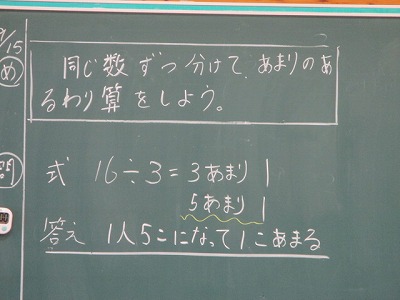 9/15
め 同じ数ずつ分けて、あまりのあ
るわり算をしよう。
問1 式 16÷3=3あまり1
5あまり1
答え 1人5こになって1こあまる